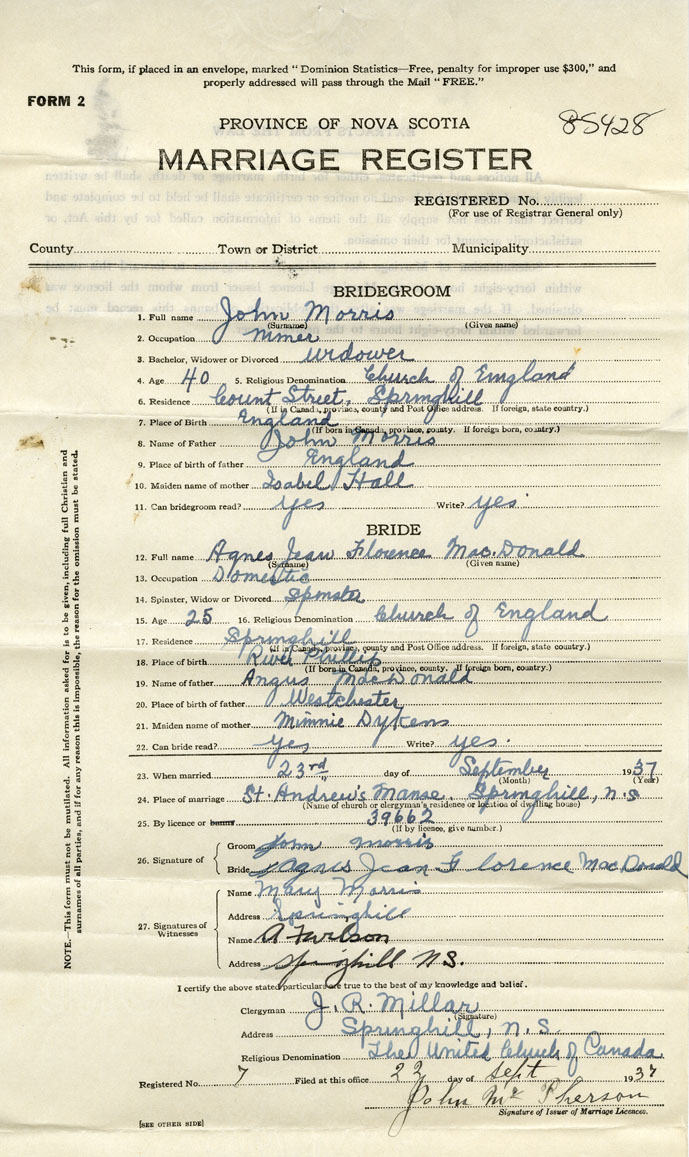 This form, if placed in an envelope, marked "Dominion Statistics—Free, penalty for improper use $300," and
properly addressed will pass through the Mail "FREE."
FORM 2
PROVINCE OF NOVA SCOTIA
85428
MARRIAGE REGISTER
REGISTERED No.
(For use of Registrar General only)
County Town or District Municipality
BRIDEGROOM
1. Full name John Morris
(Surname) (Given name)
2. Occupation miner
3. Bachelor, Widower or Divorced widower
4. Age 40 5. Religious Denomination Church of England
6. Residence Court Street, Springhill
(If in Canada, province, county and Post Office address. If foreign, state country.)
7. Place of Birth England
(If born in Canada, province, county. If foreign born, country.)
8. Name of Father John Morris
9. Place of birth of father England
10. Maiden name of mother Isabel Hall
11. Can bridegroom read? yes Write? yes
BRIDE
12. Full name Agnes Jean Florence MacDonald
(Surname) (Given name)
13. Occupation Domestic
14. Spinster, Widow or Divorced Spinster
15. Age 25 16. Religious Denomination Church of England
17. Residence Springhill
(If in Canada, province, county and Post Office address. If foreign, state country.)
18. Place of birth River Phillip
(If born in Canada, province, county. If foreign born, country.)
19. Name of father Angus MacDonald
20. Place of birth of father Westchester
21. Maiden name of mother Minnie Dykens
22. Can bride read? yes Write? yes.
23. When married 23rd day of September 1937
(Month) (Year)
24. Place of marriage St. Andrew's Manse, Springhill, N.S
(Name of church or clergyman's residence or location of dwelling house)
25. By licence or banns 39662
(If by licence, give number.)
26. Signature of
Groom John Morris
Bride Agnes Jean Florence MacDonald
27. Signatures of Witnesses
Name Mary Morris
Address Springhill
Name A Wilson
Address Springhill N.S.
I certify the above stated particulars are true to the best of my knowledge and belief.
Clergyman J. R. Millar
(Signature)
Address Springhill, N.S
Religious Denomination The United Church of Canada
Registered No. 7 Filed at this office 22 day of Sept 1937
John McPherson
Signature of Issuer of Marriage Licences.
[SEE OTHER SIDE]
NOTE.—This form must not be mutilated. All information asked for is to be given, including full Christian and
surnames of all parties, and if for any reason this is impossible, the reason for the omission must be stated.